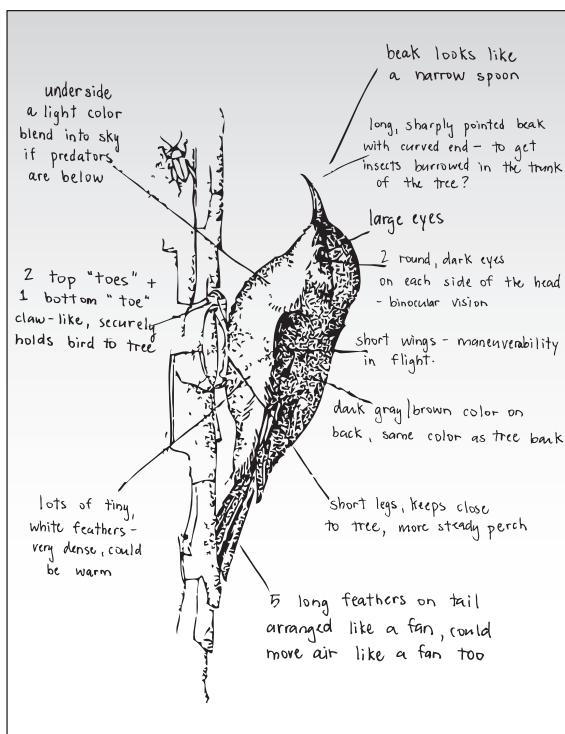 beak looks like
a narrow spoon
underside
a light color
blend into sky
if predators
are below
long, sharply pointed beak
with curved end - to get
insects burrowed in the trunk
of the tree?
large eyes
2 round, dark eyes
on each side of the head
- binocular vision
2 top "toes" +
1 bottom "toe"
claw-like, securely
holds bird to tree
short wings - maneuverability
in flight.
dark gray/brown color on
back, same color as tree bark
lots of tiny,
white feathers -
very dense, could
be warm
short legs, keeps close
to tree, more steady perch
5 long feathers on tail
arranged like a fan, could
move air like a fan too